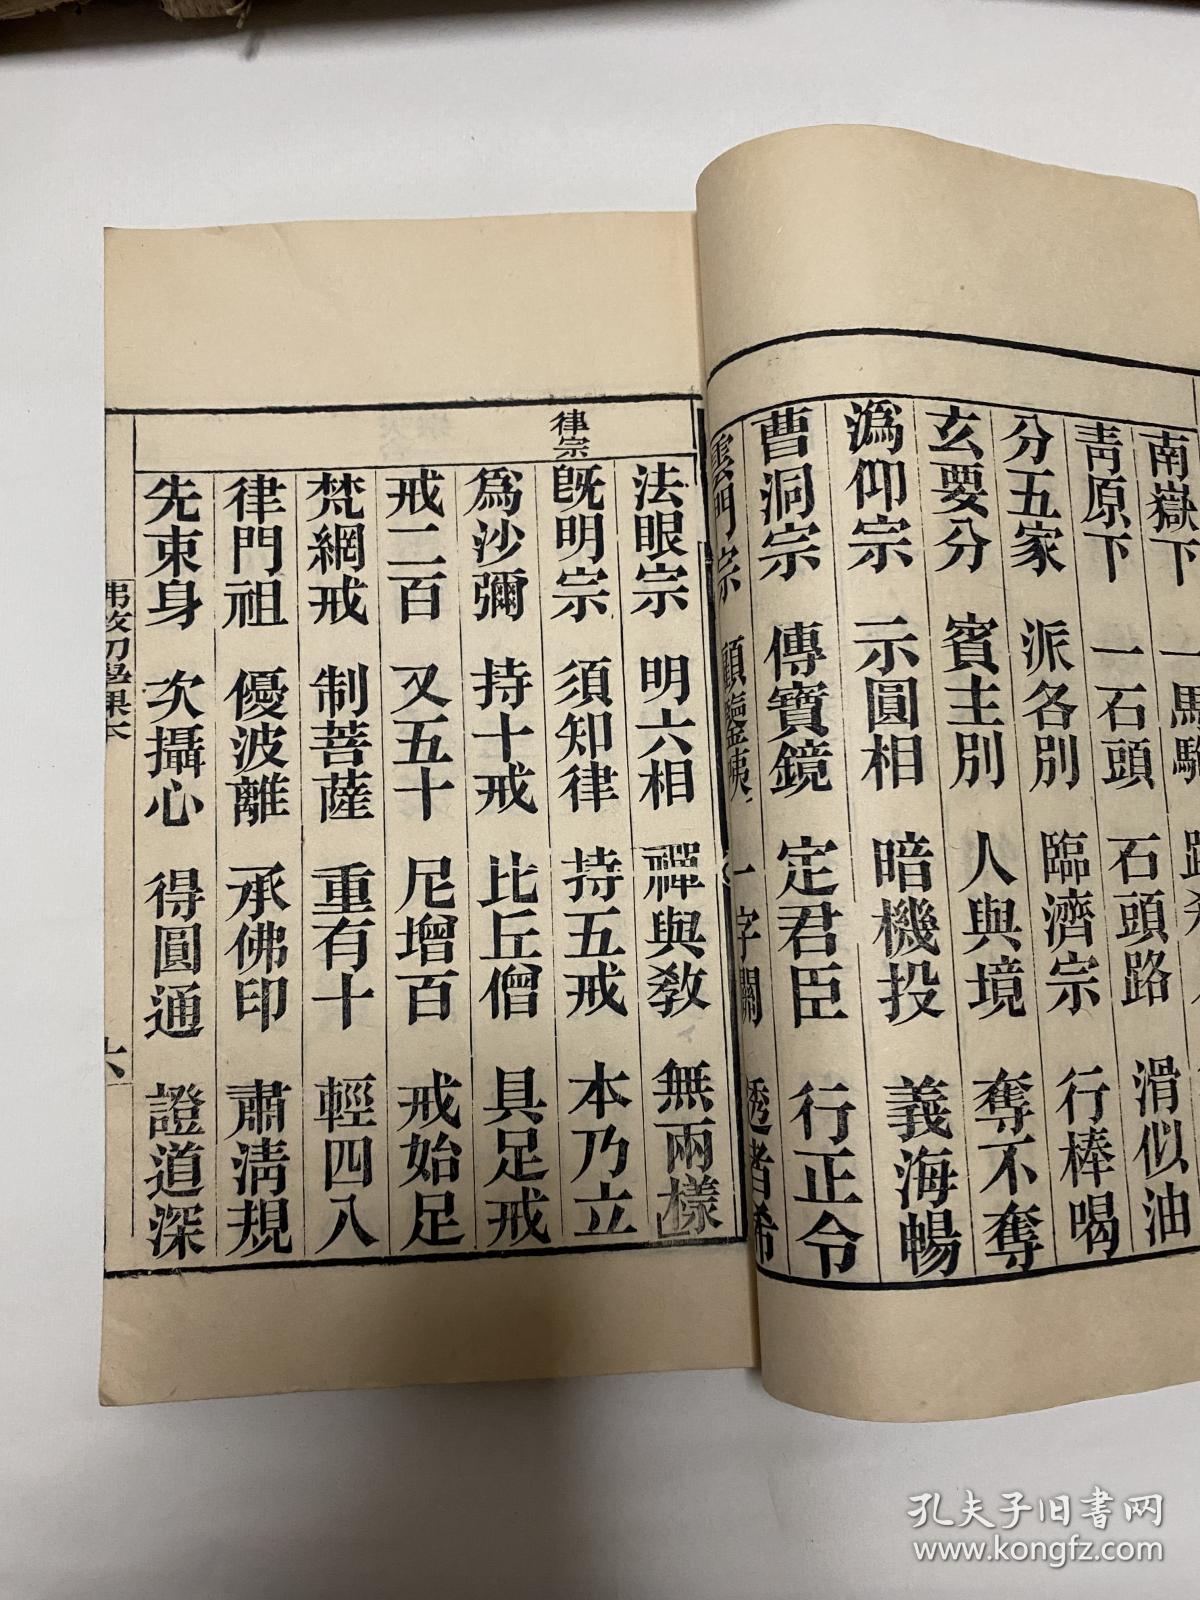 南嶽下 一馬駒
青原下 一石頭 石頭路 滑似油
分五家 派各別 臨濟宗 行棒喝
玄要分 賓主別 人與境 奪不奪
溈仰宗 示圓相 暗機投 義海暢
曹洞宗 傳寶鏡 定君臣 行正令
雲門宗 顧鑒咦 一字關 透者希
法眼宗 明六相 禪與敎 無兩樣
律宗
旣明宗 須知律 持五戒 本乃立
爲沙彌 持十戒 比丘僧 具足戒
戒二百 又五十 尼增百 戒始足
梵網戒 制菩薩 重有十 輕四八
律門祖 優波離 承佛印 肅淸規
先束身 次攝心 得圓通 證道深
六
孔夫子旧书网
www.kongfz.com